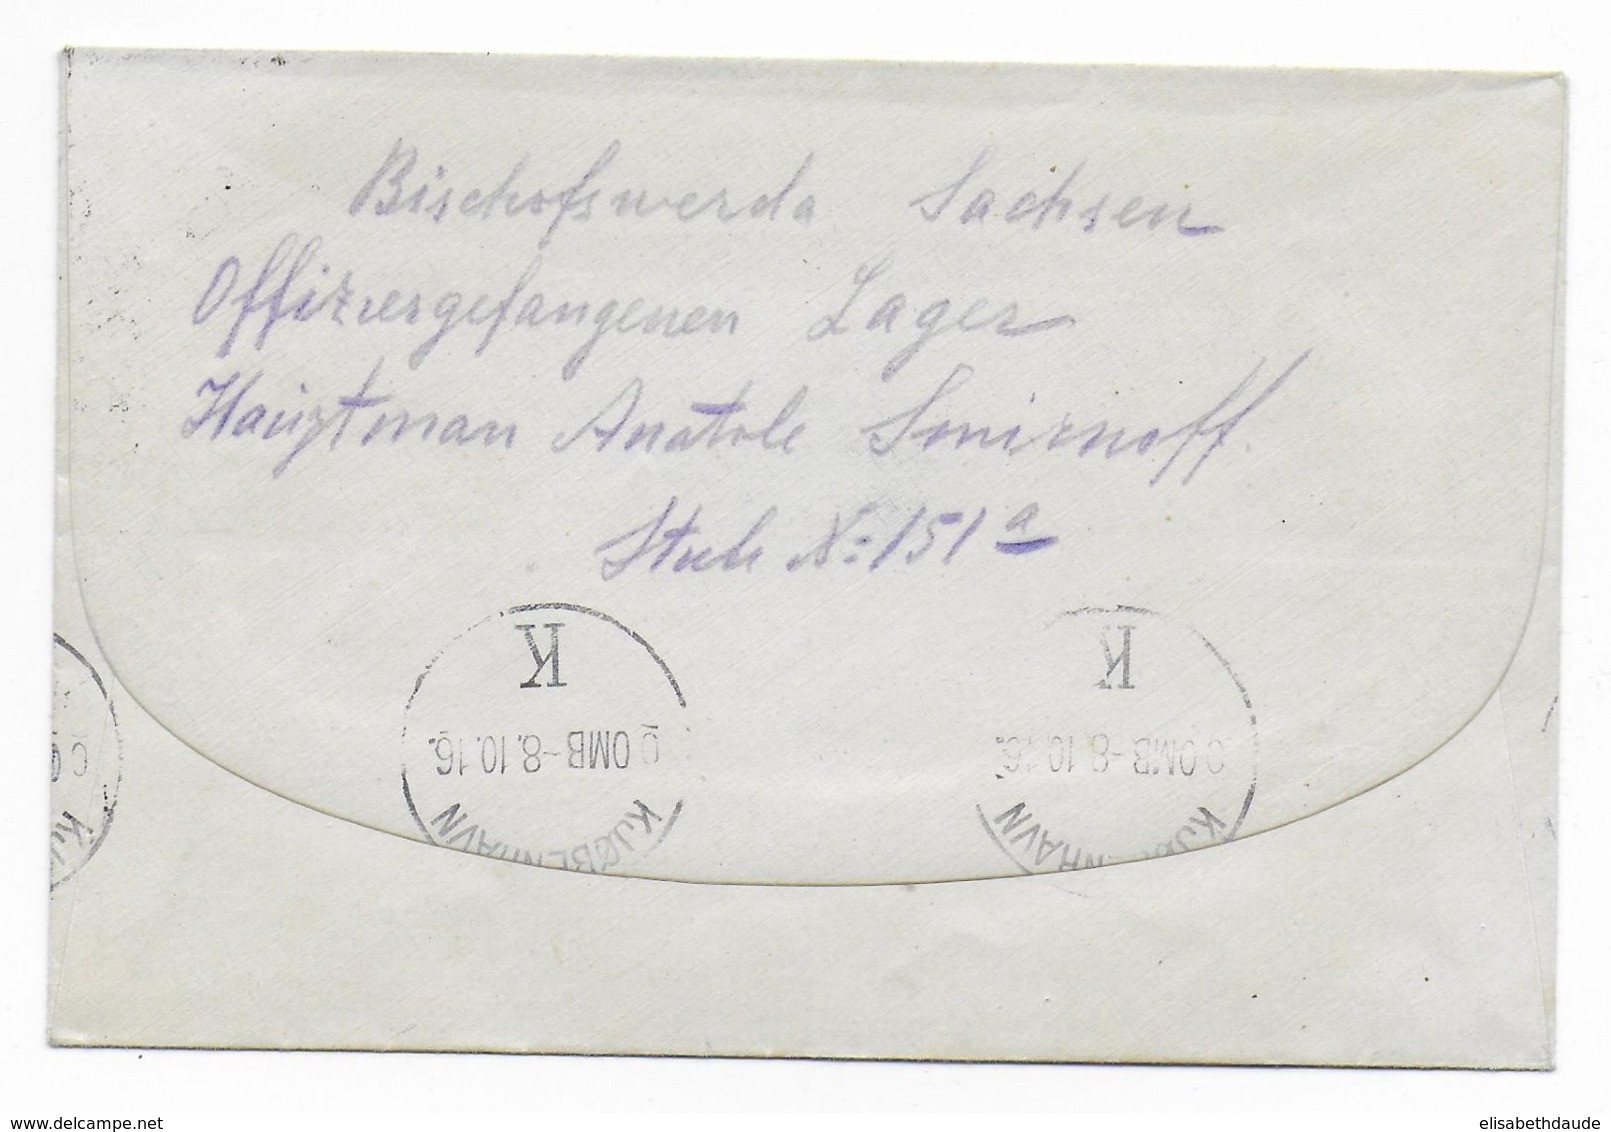 Bischofswerda Sachsen
Offiziergefangenen Lager
Hauptman Anatole Smirnoff.
Stube No 151a
K
OMB -8.10.16.
KJØBENHAVN
K
OMB -8.10.16.
KJØBENHAVN
elisabethdaude